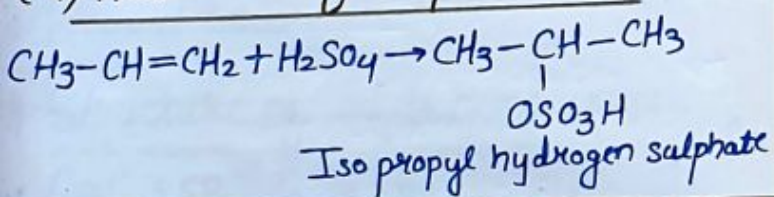 CH3-CH=CH2+H2SO4→CH3-CH-CH3
|
OSO3H
Iso propyl hydrogen sulphate